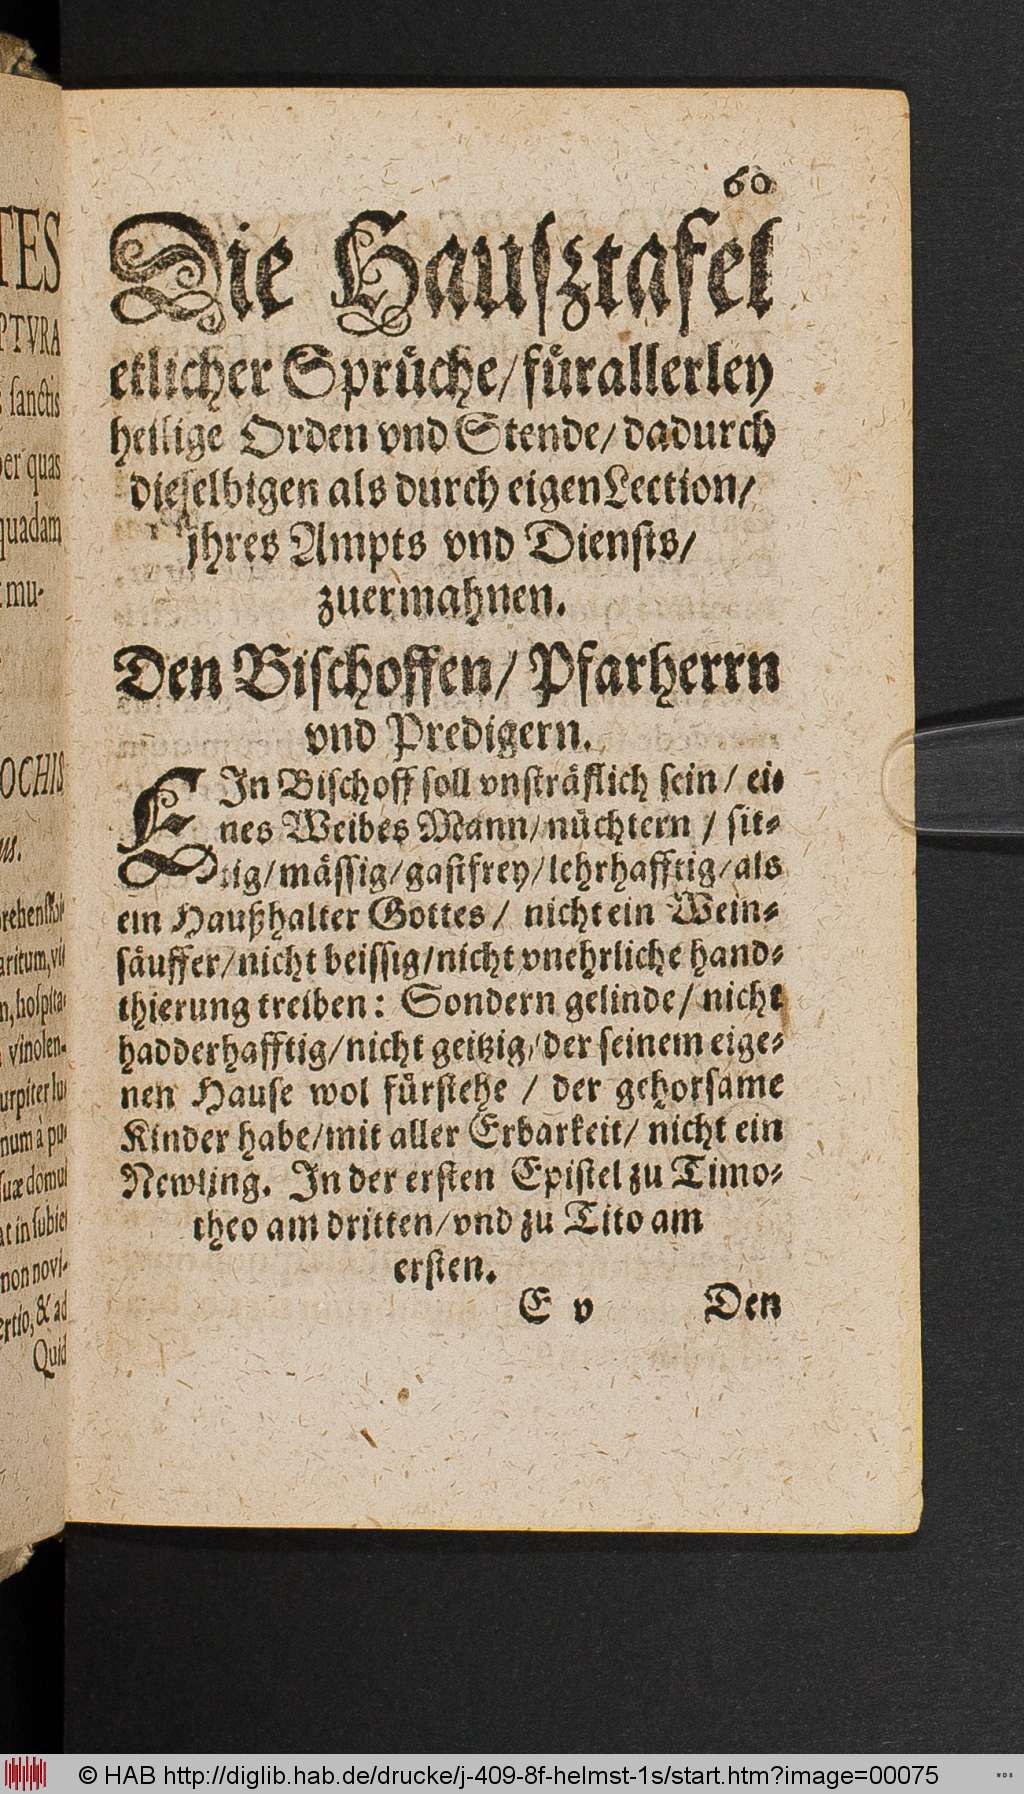 TES
PTVRA
sanctis
per quas
quadam
mu-
OCHIS
us.
vinolen-
num à pu-
suæ domui
non novi-
& ad
Quid
60
Die Hausztafel
etlicher Sprüche/ für allerley
heilige Orden vnd Stende/ dadurch
dieselbigen als durch eigen Lection/
jhres Ampts vnd Diensts/
zuermahnen.
Den Bischoffen/ Pfarherrn
vnd Predigern.
EIn Bischoff soll vnsträflich sein/ ei-
nes Weibes Mann/ nüchtern / sit-
tig/ mässig/ gastfrey/ lehrhafftig/ als
ein Haußhalter Gottes/ nicht ein Wein-
säuffer/ nicht beissig/ nicht vnehrliche hand-
thierung treiben: Sondern gelinde/ nicht
hadderhafftig/ nicht geitzig/ der seinem eige-
nen Hause wol fürstehe / der gehorsame
Kinder habe/ mit aller Erbarkeit/ nicht ein
Newling. In der ersten Epistel zu Timo-
theo am dritten/ vnd zu Tito am
ersten.
E v Den
© HAB http://diglib.hab.de/drucke/j-409-8f-helmst-1s/start.htm?image=00075